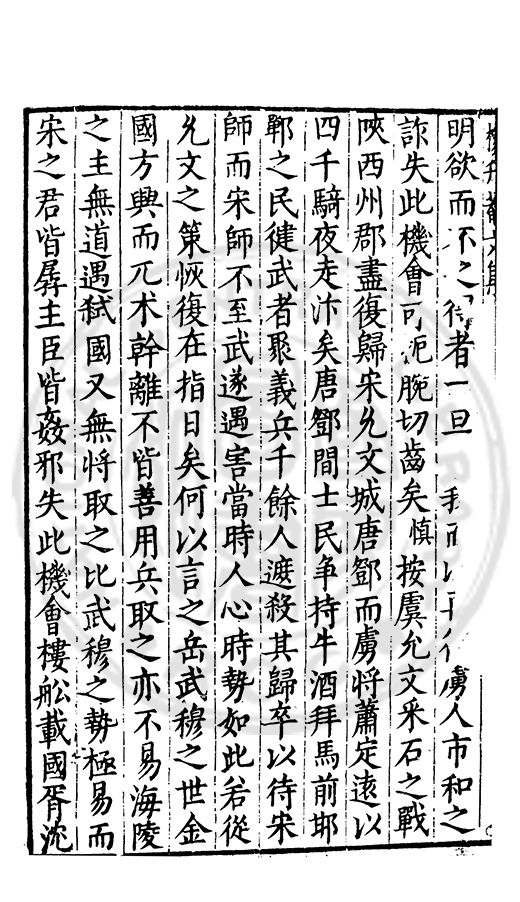 明欲而不之得者一旦我而以人虜人市和之
詐失此機會可扼腕切齒矣慎按虞允文采石之戰
陝西州郡盡復歸宋允文城唐鄧而虜將蕭定遠以
四千騎夜走汴矣唐鄧間士民爭持牛酒拜馬前耶
鄆之民徤武者聚義兵千餘人遮殺其歸卒以待宋
師而宋師不至武遂遇害當時人心時勢如此若從
允文之策恢復在指日矣何以言之岳武穆之世金
國方興而兀术幹離不皆善用兵取之亦不易海陵
之主無道遇弒國又無將取之比武穆之勢極易而
宋之君皆孱主臣皆姦邪失此機會樓舩載國胥沈